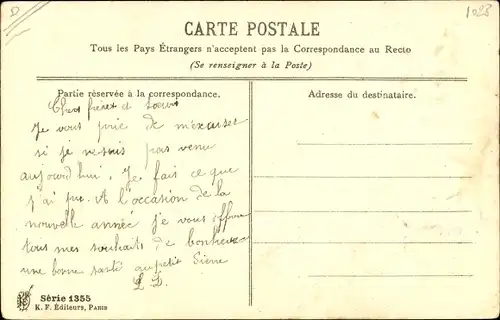 1023
CARTE POSTALE
Tous les Pays Étrangers n'acceptent pas la Correspondance au Recto
(Se renseigner à la Poste)
Partie réservée à la correspondance.
Adresse du destinataire.
Chers frères et Soeurs
Je vous prie de m'excuser
si je ne suis pas venu
aujourd'hui. Je fais ce que
j'ai pu. A l'occasion de la
nouvelle année je vous offre
tous mes souhaits de bonheur
une bonne santé au petit
Série 1355
K. F. Éditeurs, Paris